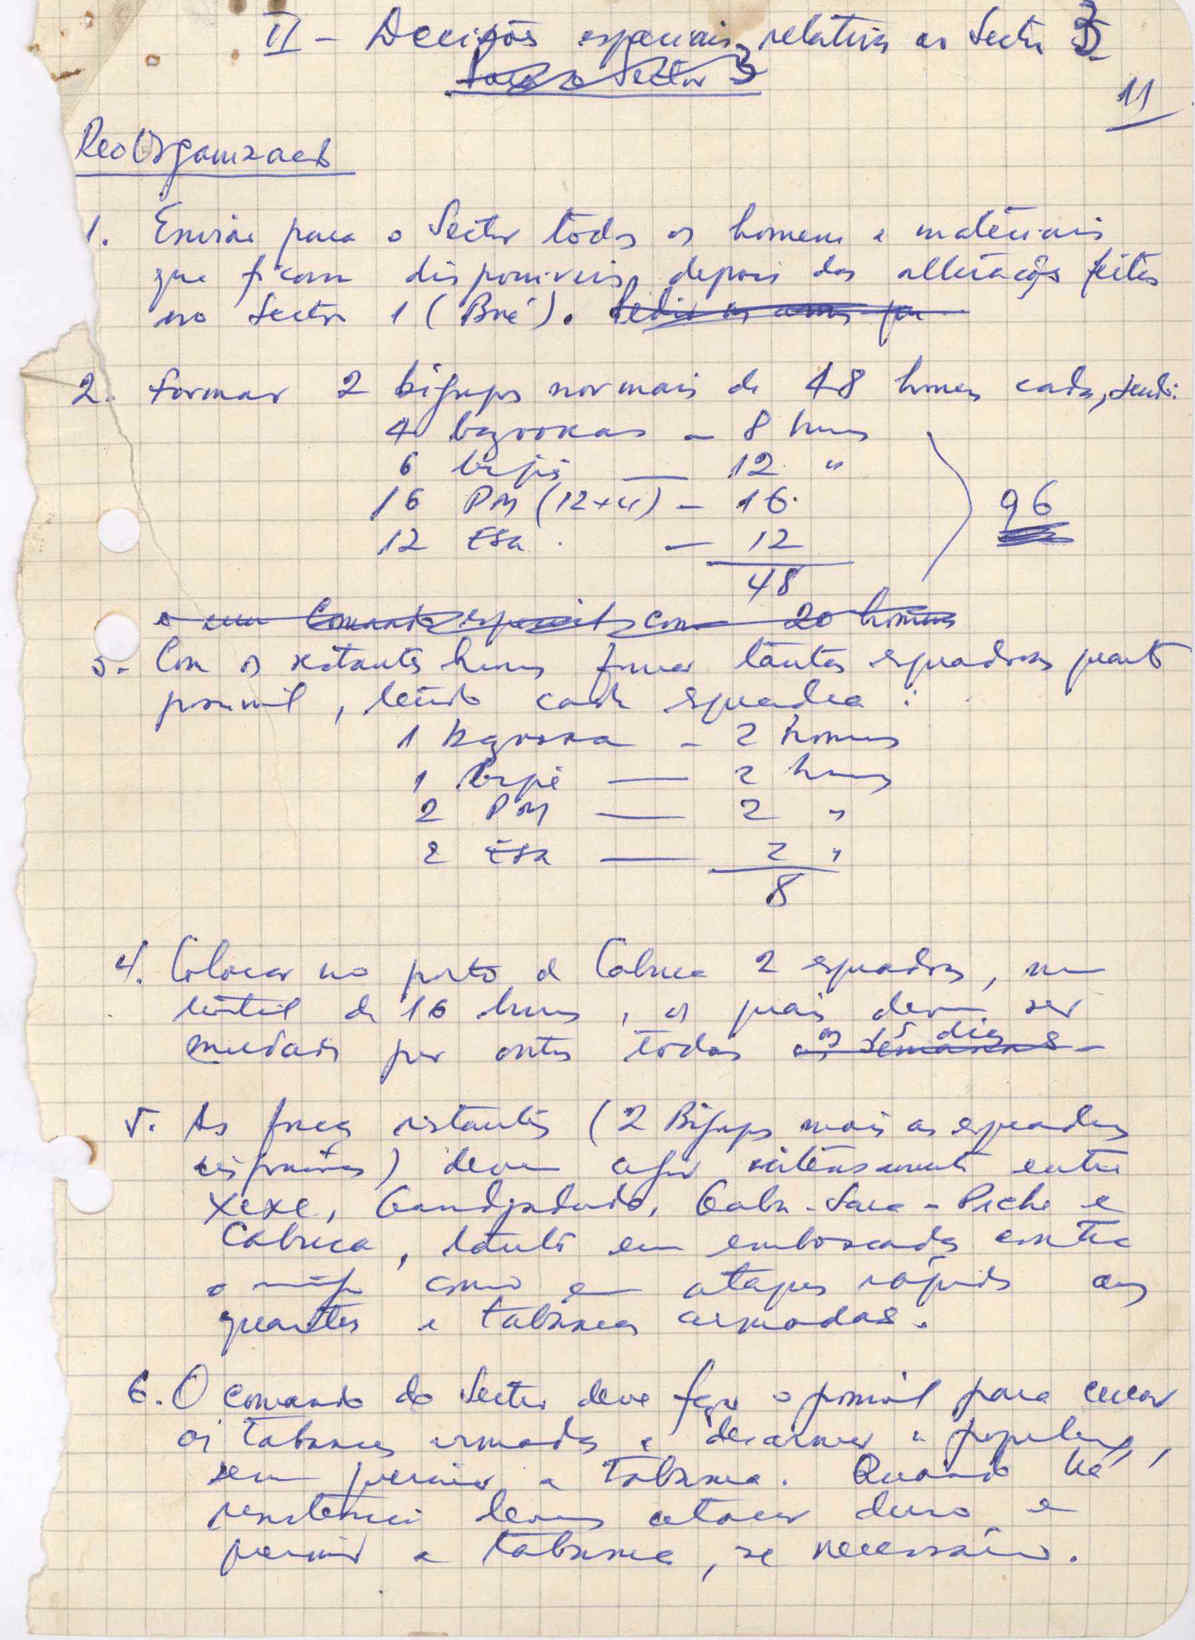 II - Decisões especiais relativas ao Sector 3
Para o Sector 3
11
ReoOrganizacão
1. Enviar para o Sector todos os homens e materiais
que ficam disponiveis, depois das alterações feitas
no Sector 1 (Boé). Pedir as armas
2. Formar 2 bigrups normais de 48 homens cada, sendo:
4 bazookas - 8 hms
6 bipés — 12 "
16 PM (12+4) - 16.
12 ESA. — 12
48
96
e um Comando especial com 20 homens
3. Com os restantes homens formar tantas esquadras quanto
possivel, tendo cada esquadra:
1 bazooka - 2 homens
1 bipé — 2 hms
2 PM — 2 "
2 ESA — 2 "
8
4. Colocar no porto de Cabuca 2 esquadras, num
total de 16 homens, os quais devem ser
mudados por outros todos as semanas
os 15 dias
5. As forças restantes (2 Bigrups mais as esquadras
disponiveis) devem agir intensamente entre
Xexe, Candjadude, Gabu-Sara-Piche e
Cabuca, tanto em emboscadas contra
o como em ataques rápidos aos
quarteis e tabancas armadas.
6. O comando do Sector deve fazer o possivel para cercar
as tabancas armadas e desarmar a população,
sem queimar a tabanca. Quando há
resistencia devem atacar duro e
queimar a tabanca, se necessário.